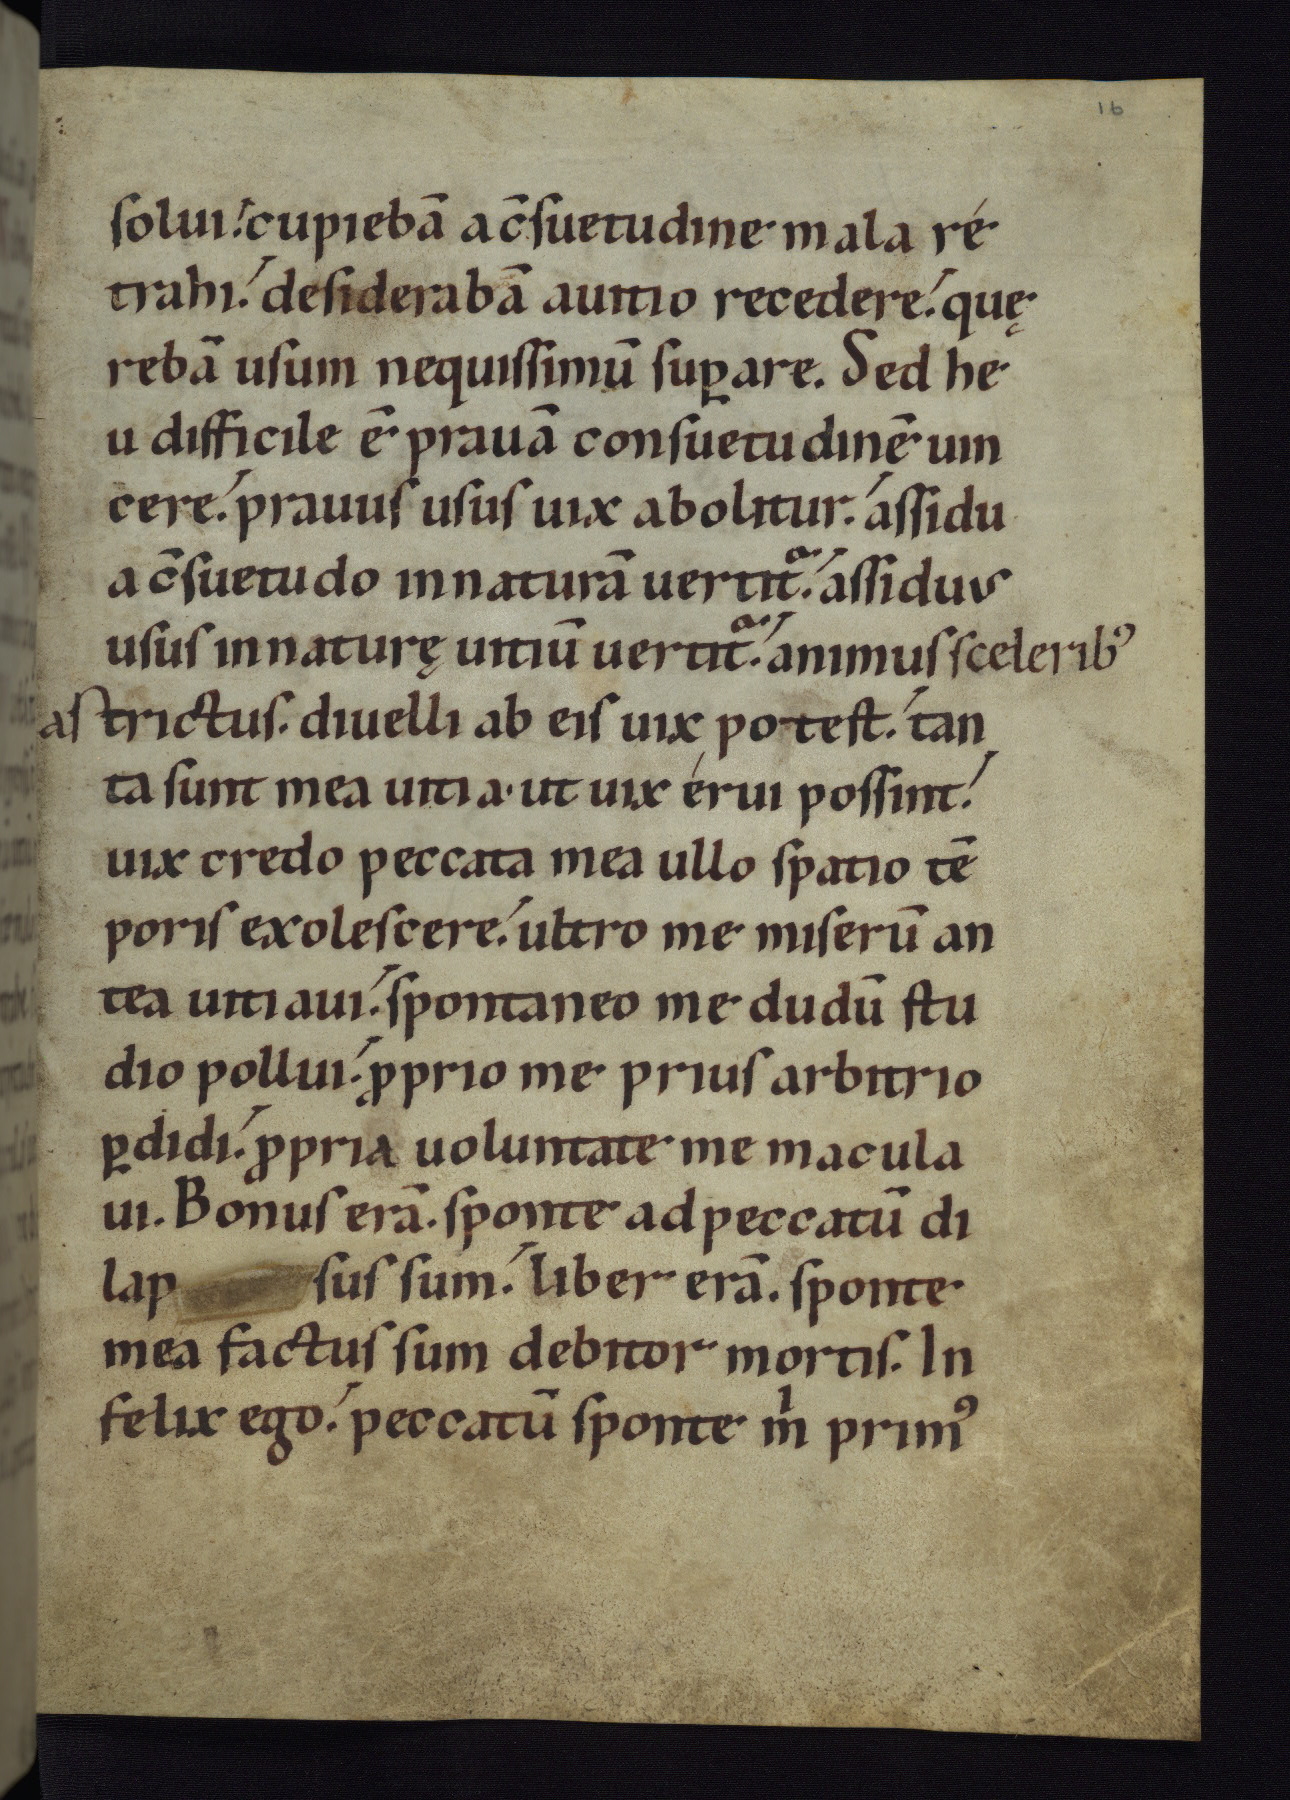 16
solui. cupiebā a c̄suetudine mala re
trahi. desiderabā a uitio recedere. quę
rebā usum nequissimū suꝑare. Sed he
u difficile ē prauā consuetudinē uin
cere. prauus usus uix abolitur. assidu
a c̄suetudo in naturā uertitᷓ. assiduus
usus in naturę uitiū uertitᷓ. animus sceleribꝰ
astrictus. diuelli ab eis uix potest. tan
ta sunt mea uitia. ut uix érui possint.
uix credo peccata mea ullo spatio tē
poris exolescere. ultro me miserū an
tea uitiaui. spontaneo me dudū stu
dio pollui. ꝓprio me prius arbitrio
ꝑdidi. ꝓpria uoluntate me macula
ui. Bonus erā. sponte ad peccatū di
lap sus sum. liber erā. sponte
mea factus sum debitor mortis. In
felix ego. peccatū sponte mͥ primꝰ